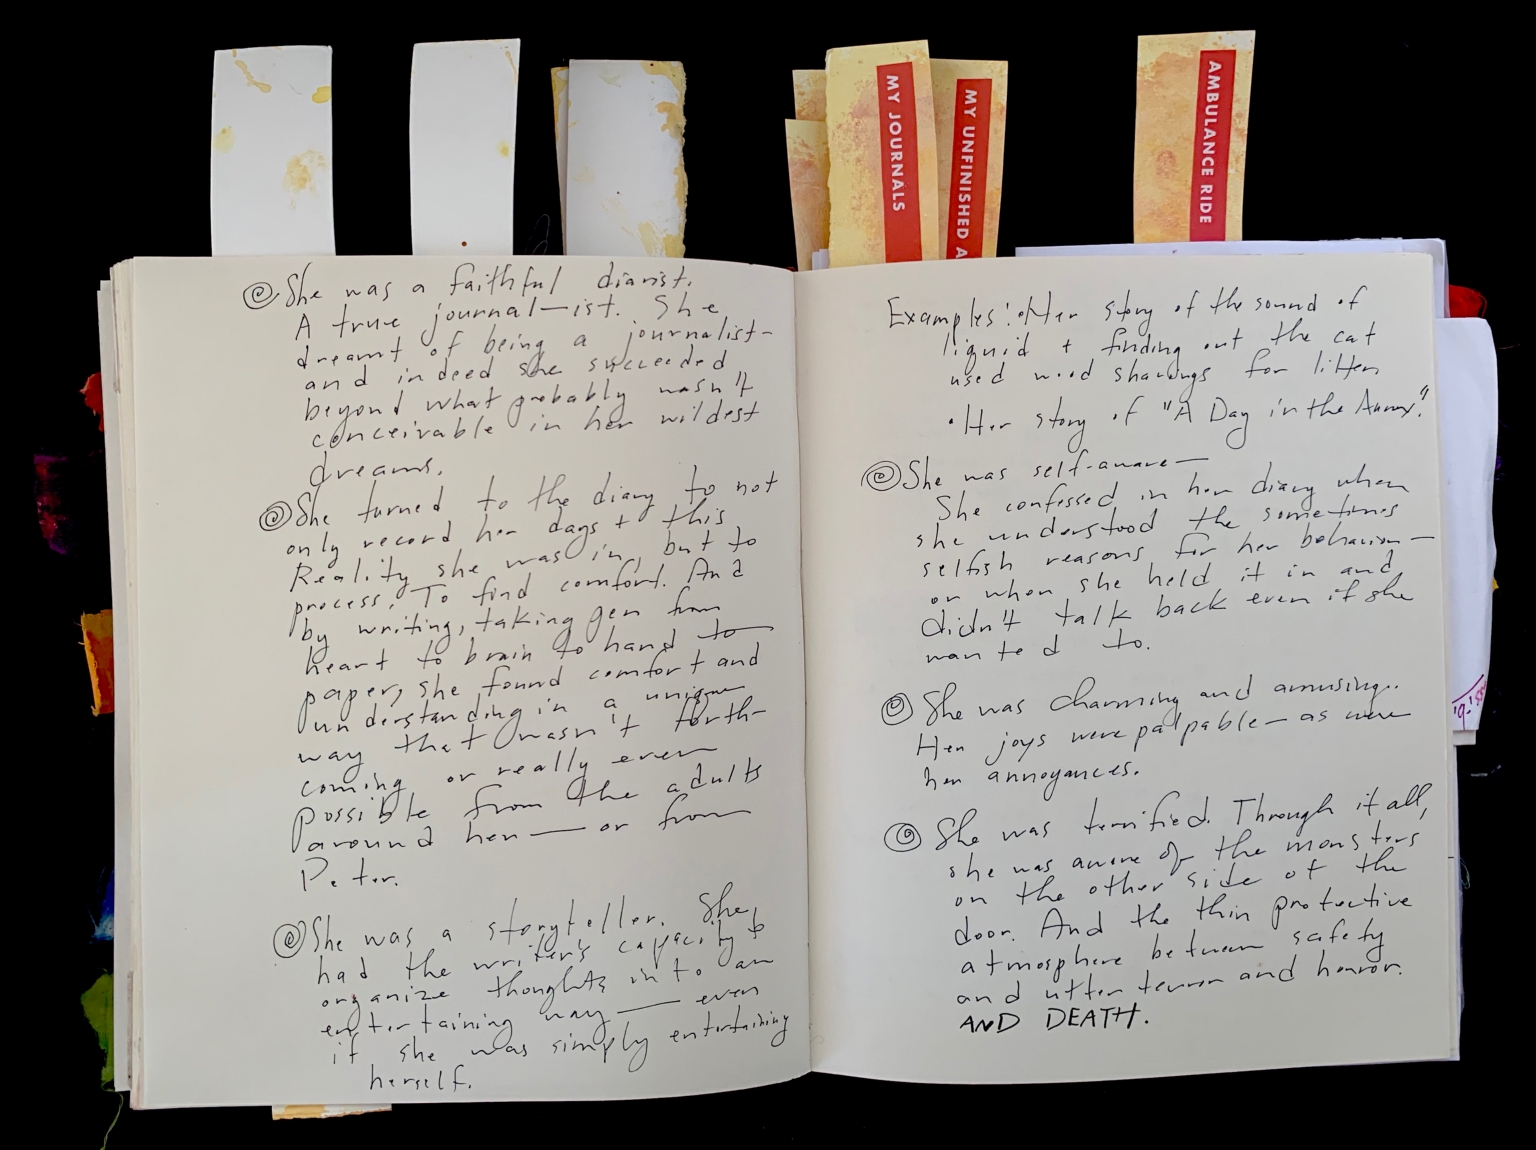 MY JOURNALS
MY UNFINISHED A
AMBULANCE RIDE
She was a faithful diarist.
A true journal-ist. She
dreamt of being a journalist-
and indeed she succeeded
beyond what probably wasn't
conceivable in her wildest
dreams.
She turned to the diary to not
only record her days + this
Reality she was in, but to
process. To find comfort. And
by writing, taking pen from
heart to brain to hand to
paper, she found comfort and
understanding in a unique
way that wasn't forth-
coming or really even
possible from the adults
around her — or from
Peter.
She was a storyteller. She
had the writer's capacity to
organize thoughts into an
entertaining way — even
if she was simply entertaining
herself.
Examples: • Her story of the sound of
liquid + finding out the cat
used wood shavings for litter
• Her story of "A Day in the Annex."
She was self-aware —
She confessed in her diary when
she understood the sometimes
selfish reasons for her behavior —
or when she held it in and
didn't talk back even if she
wanted to.
She was charming and amusing.
Her joys were palpable — as were
her annoyances.
She was terrified. Through it all,
she was aware of the monsters
on the other side of the
door. And the thin protective
atmosphere between safety
and utter terror and horror.
AND DEATH.